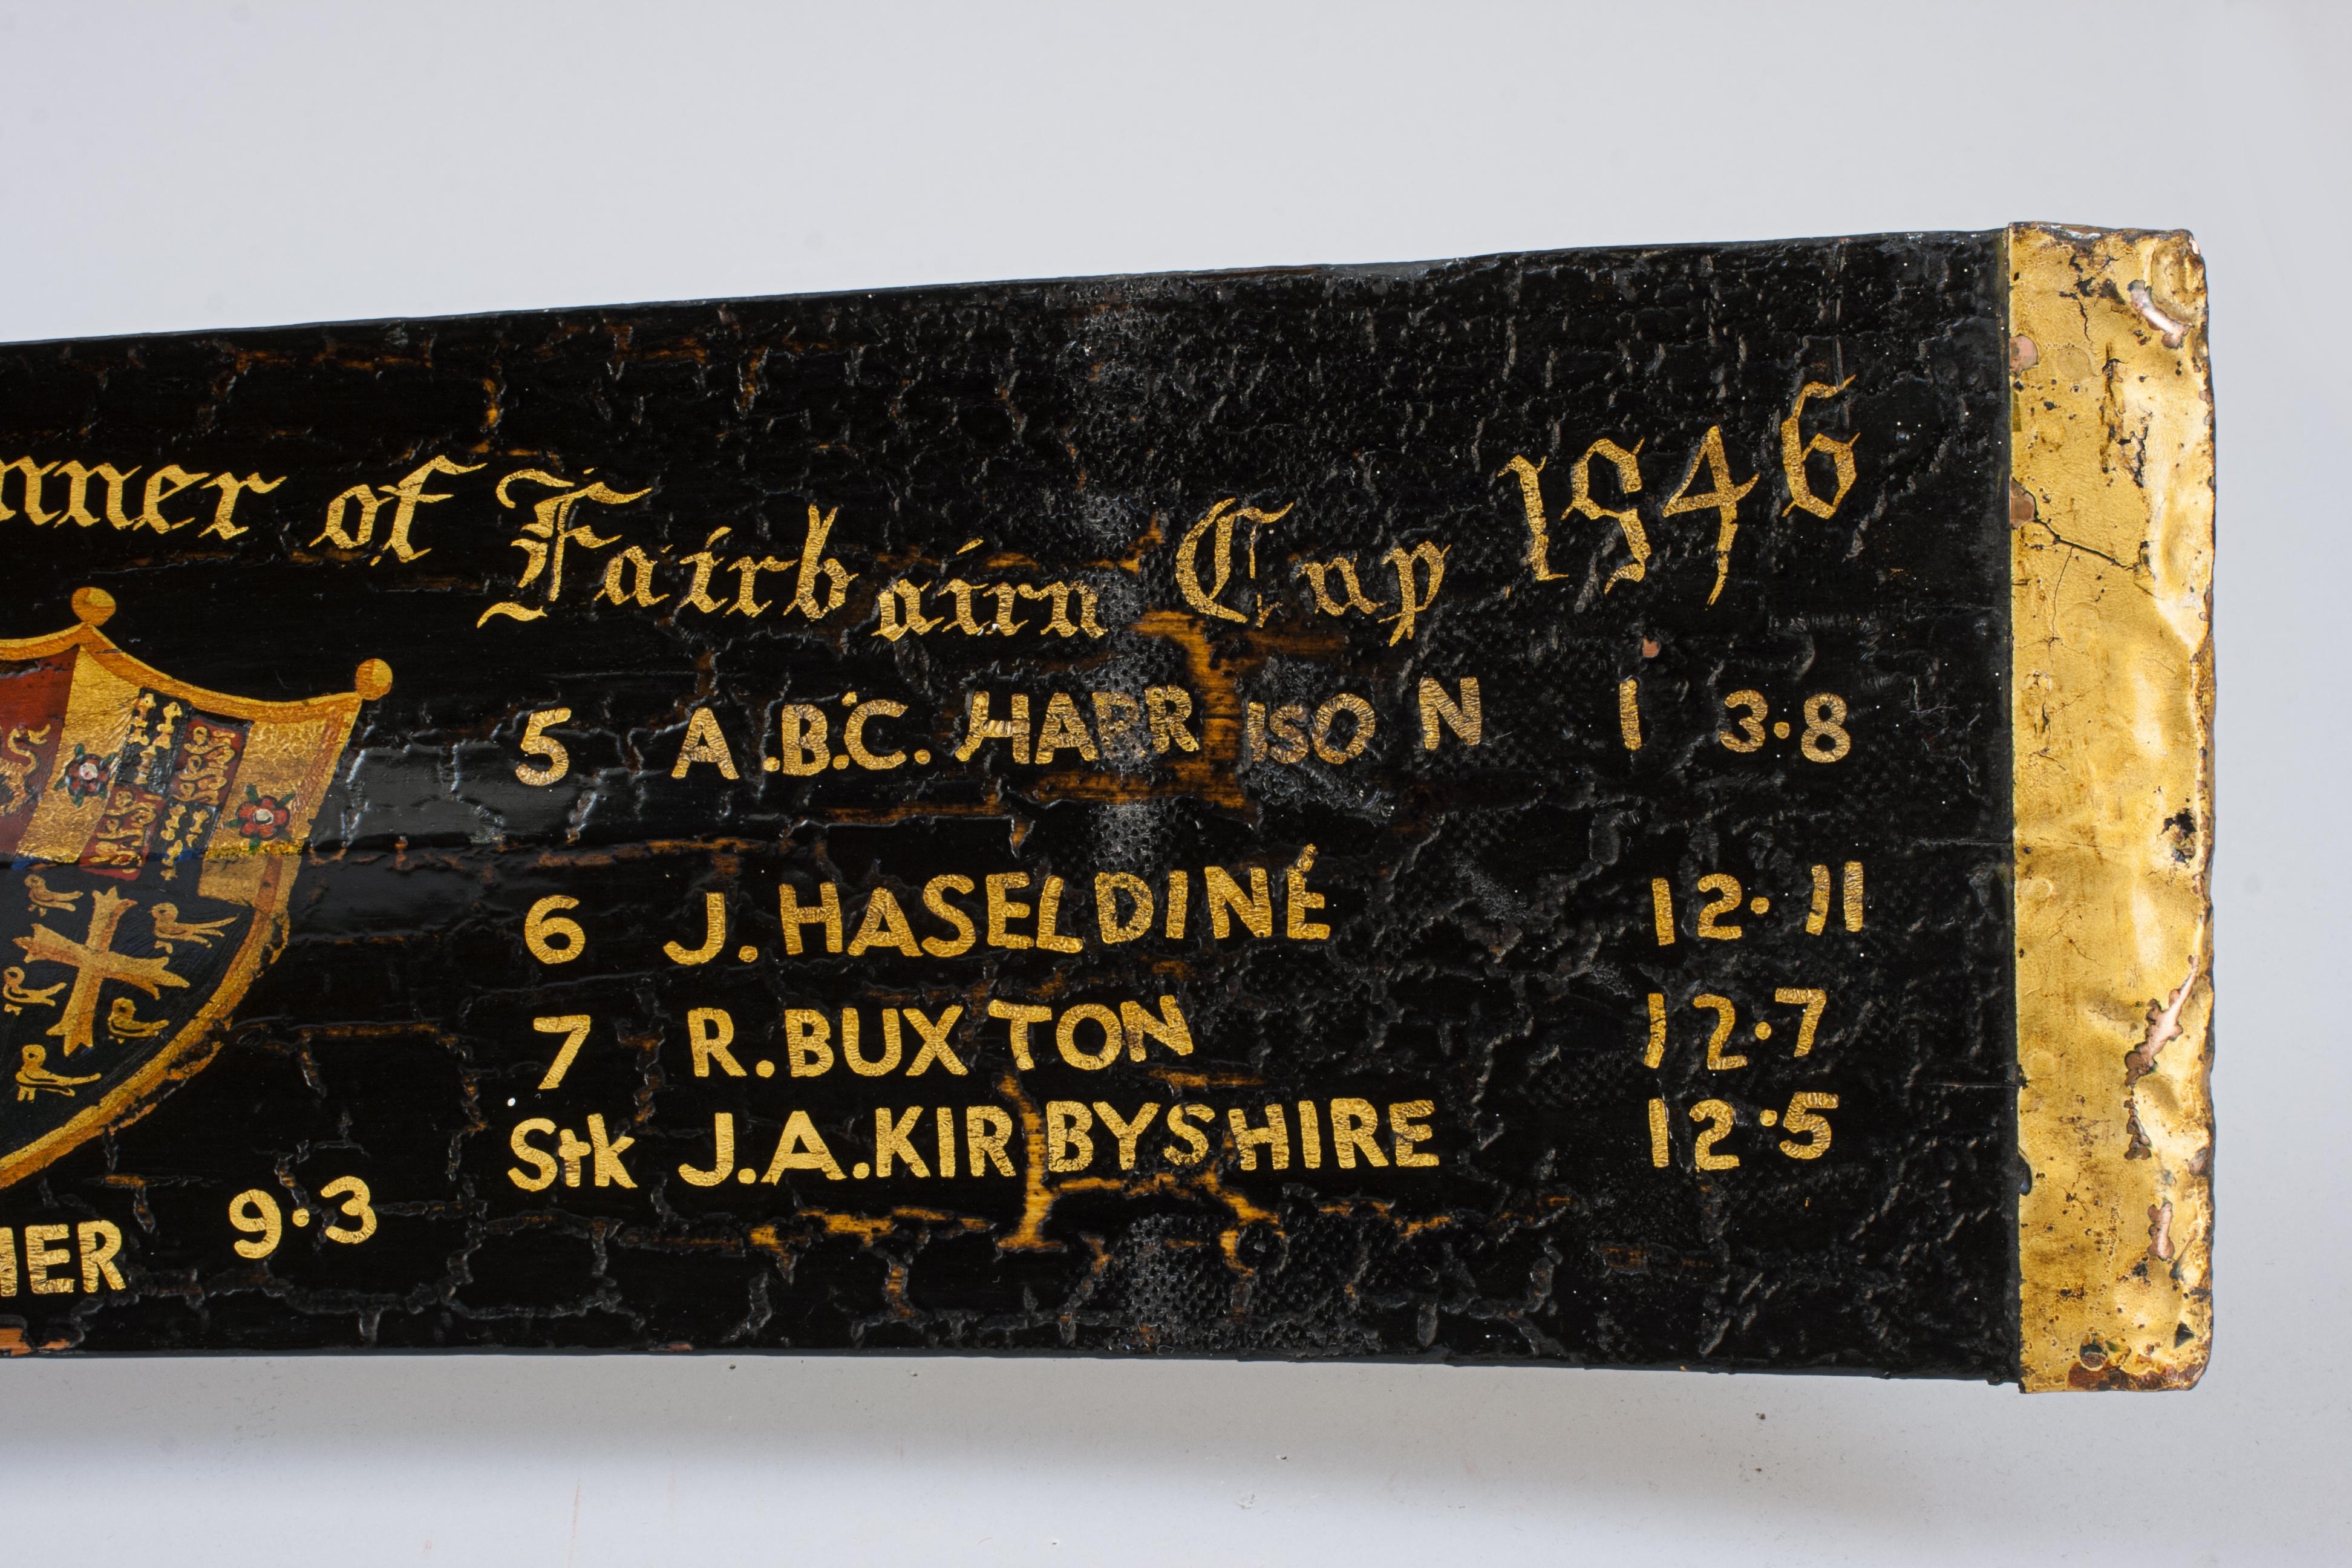 nner of Fairbairn Cup 1946
5 A.B.C. HARRISON 13·8
6 J. HASELDINÉ 12·11
7 R. BUXTON 12·7
Stk J.A. KIRBYSHIRE 12·5
HER 9·3